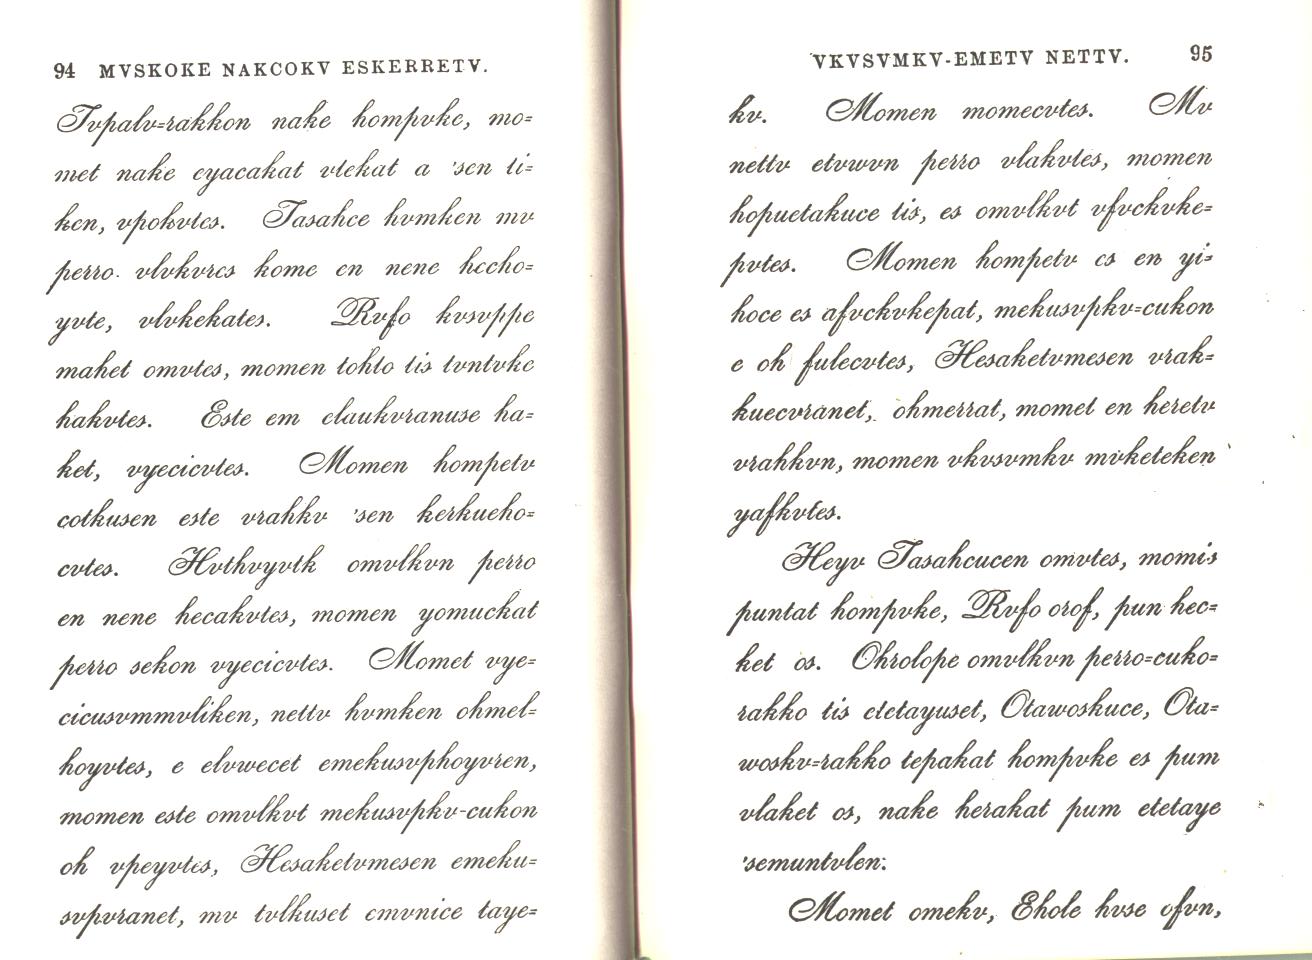 94 MVSKOKE NAKCOKV ESKERRETV.
Tvpalv=rakkon nake hompvke, mo=
met nake cyacakat vtekat a 'sen li=
ken, vpokvtes. Tasahce hvmken mv
perro vlvkvres kome en nene hecho=
yvte, vlvkekates. Rvfo kvsvppe
mahet omvtes, momen tohto tis tvntvke
hakvtes. Este em elaukvranuse ha=
ket, vyecicvtes. Momen hompetv
cotkusen este vrahkv 'sen kerkueho=
cvtes. Hvthvyvtk omvlkvn perro
en nene hecakvtes, momen yomuckat
perro sekon vyecicvtes. Momet vye=
cicusvmmvliken, nettv hvmken ohmel=
hoyvtes, e elvwecet emekusvphoyvren,
momen este omvlkvt mekusvpkv-cukon
oh vpeyvtes, Hesaketvmesen emeku=
svpvranet, mv tvlkuset emvnice taye=
VKVSVMKV-EMETV NETTV. 95
kv. Momen momecvtes. Mv
nettv etvwvn perro vlakvtes, momen
hopuetakuce tis, es omvlkvt vfvckvke=
pvtes. Momen hompetv es en yi=
hoce es afvckvkepat, mekusvpkv=cukon
e oh fulecvtes, Hesaketvmesen vrak=
kuecvranet, ohmerrat, momet en heretv
vrahkvn, momen vkvsvmkv mvketeken
yafkvtes.
Heyv Tasahcucen omvtes, momis
puntat hompvke, Rvfo orof, pun hec=
ket os. Ohrolope omvlkvn perro=cuko=
rakko tis etetayuset, Otawoskuce, Ota=
woskv=rakko tepakat hompvke es pum
vlaket os, nake herakat pum etetaye
'semuntvlen.
Momet omekv, Ehole hvse ofvn,